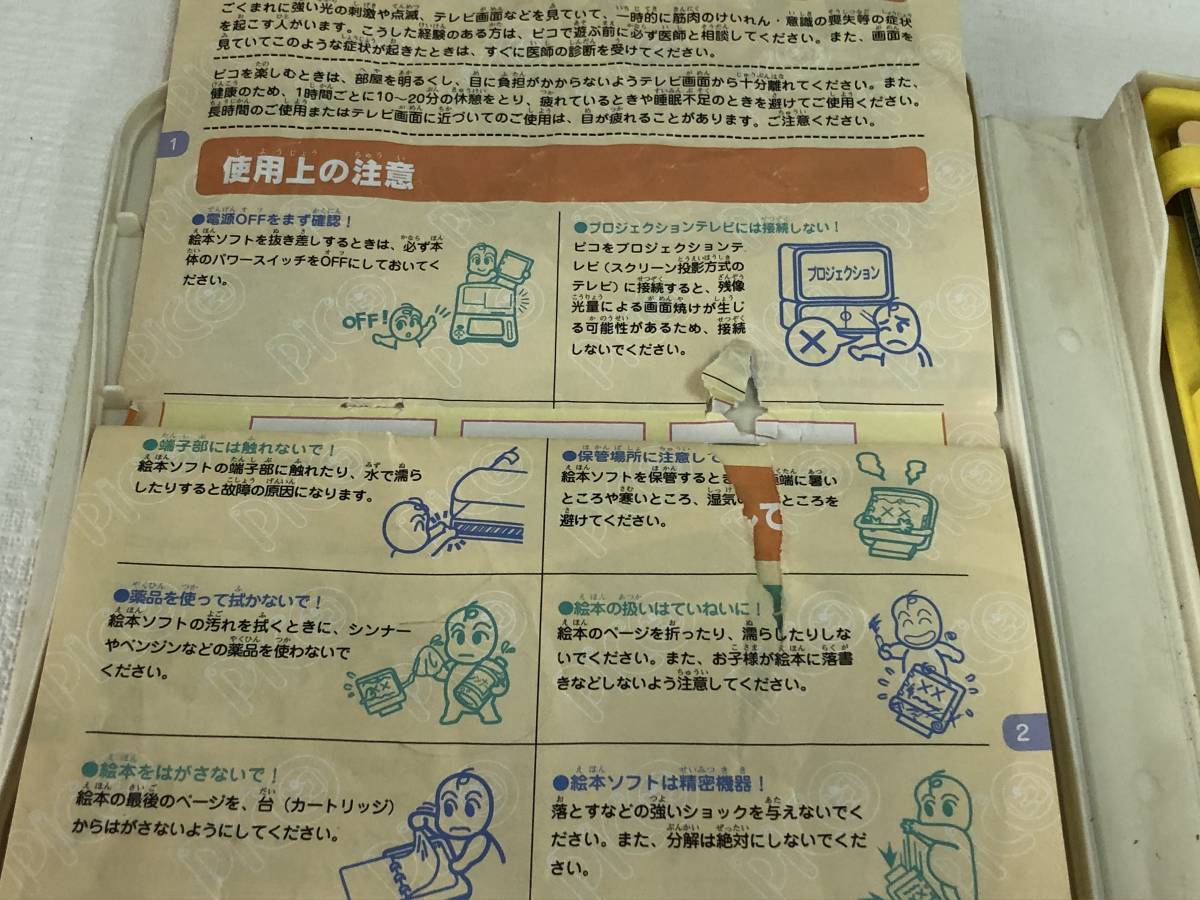 ごくまれに強い光の刺激や点滅、テレビ画面などを見ていて、一時的に筋肉のけいれん・意識の喪失等の症状
を起こす人がいます。こうした経験のある方は、ピコで遊ぶ前に必ず医師と相談してください。また、画面を
見ていてこのような症状が起きたときは、すぐに医師の診断を受けてください。
ピコを楽しむときは、部屋を明るくし、目に負担がかからないようテレビ画面から十分離れてください。また、
健康のため、1時間ごとに10〜20分の休憩をとり、疲れているときや睡眠不足のときを避けてご使用ください。
長時間のご使用またはテレビ画面に近づいてのご使用は、目が疲れることがあります。ご注意ください。
1
使用上の注意
●電源OFFをまず確認！
絵本ソフトを抜き差しするときは、必ず本
体のパワースイッチをOFFにしておいてく
ださい。
OFF!
●プロジェクションテレビには接続しない！
ピコをプロジェクションテ
レビ（スクリーン投影方式の
テレビ）に接続すると、残像
光量による画面焼けが生じ
る可能性があるため、接続
しないでください。
プロジェクション
●端子部には触れないで！
絵本ソフトの端子部に触れたり、水で濡ら
したりすると故障の原因になります。
●保管場所に注意して
絵本ソフトを保管するとき 端に暑い
ところや寒いところ、湿気 ところを
避けてください。
て
●薬品を使って拭かないで！
絵本ソフトの汚れを拭くときに、シンナー
やベンジンなどの薬品を使わないで
ください。
●絵本の扱いはていねいに！
絵本のページを折ったり、濡らしたりしな
いでください。また、お子様が絵本に落書
きなどしないよう注意してください。
2
●絵本をはがさないで！
絵本の最後のページを、台（カートリッジ）
からはがさないようにしてください。
●絵本ソフトは精密機器！
落とすなどの強いショックを与えないでく
ださい。また、分解は絶対にしないでくだ
さい。